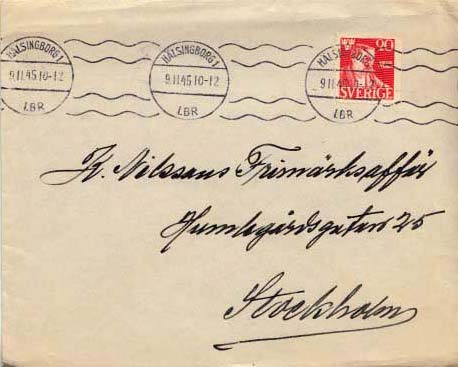 HÄLSINGBORG 1 HÄLSINGBORG 1 HÄLSINGBORG 1
9.11.45 10-12 9.11.45 10-12 9.11.45 10-12
LBR LBR LBR
20
SVERIGE
K. Nilssons Frimärksaffär
Humlegårdsgatan 25
Stockholm